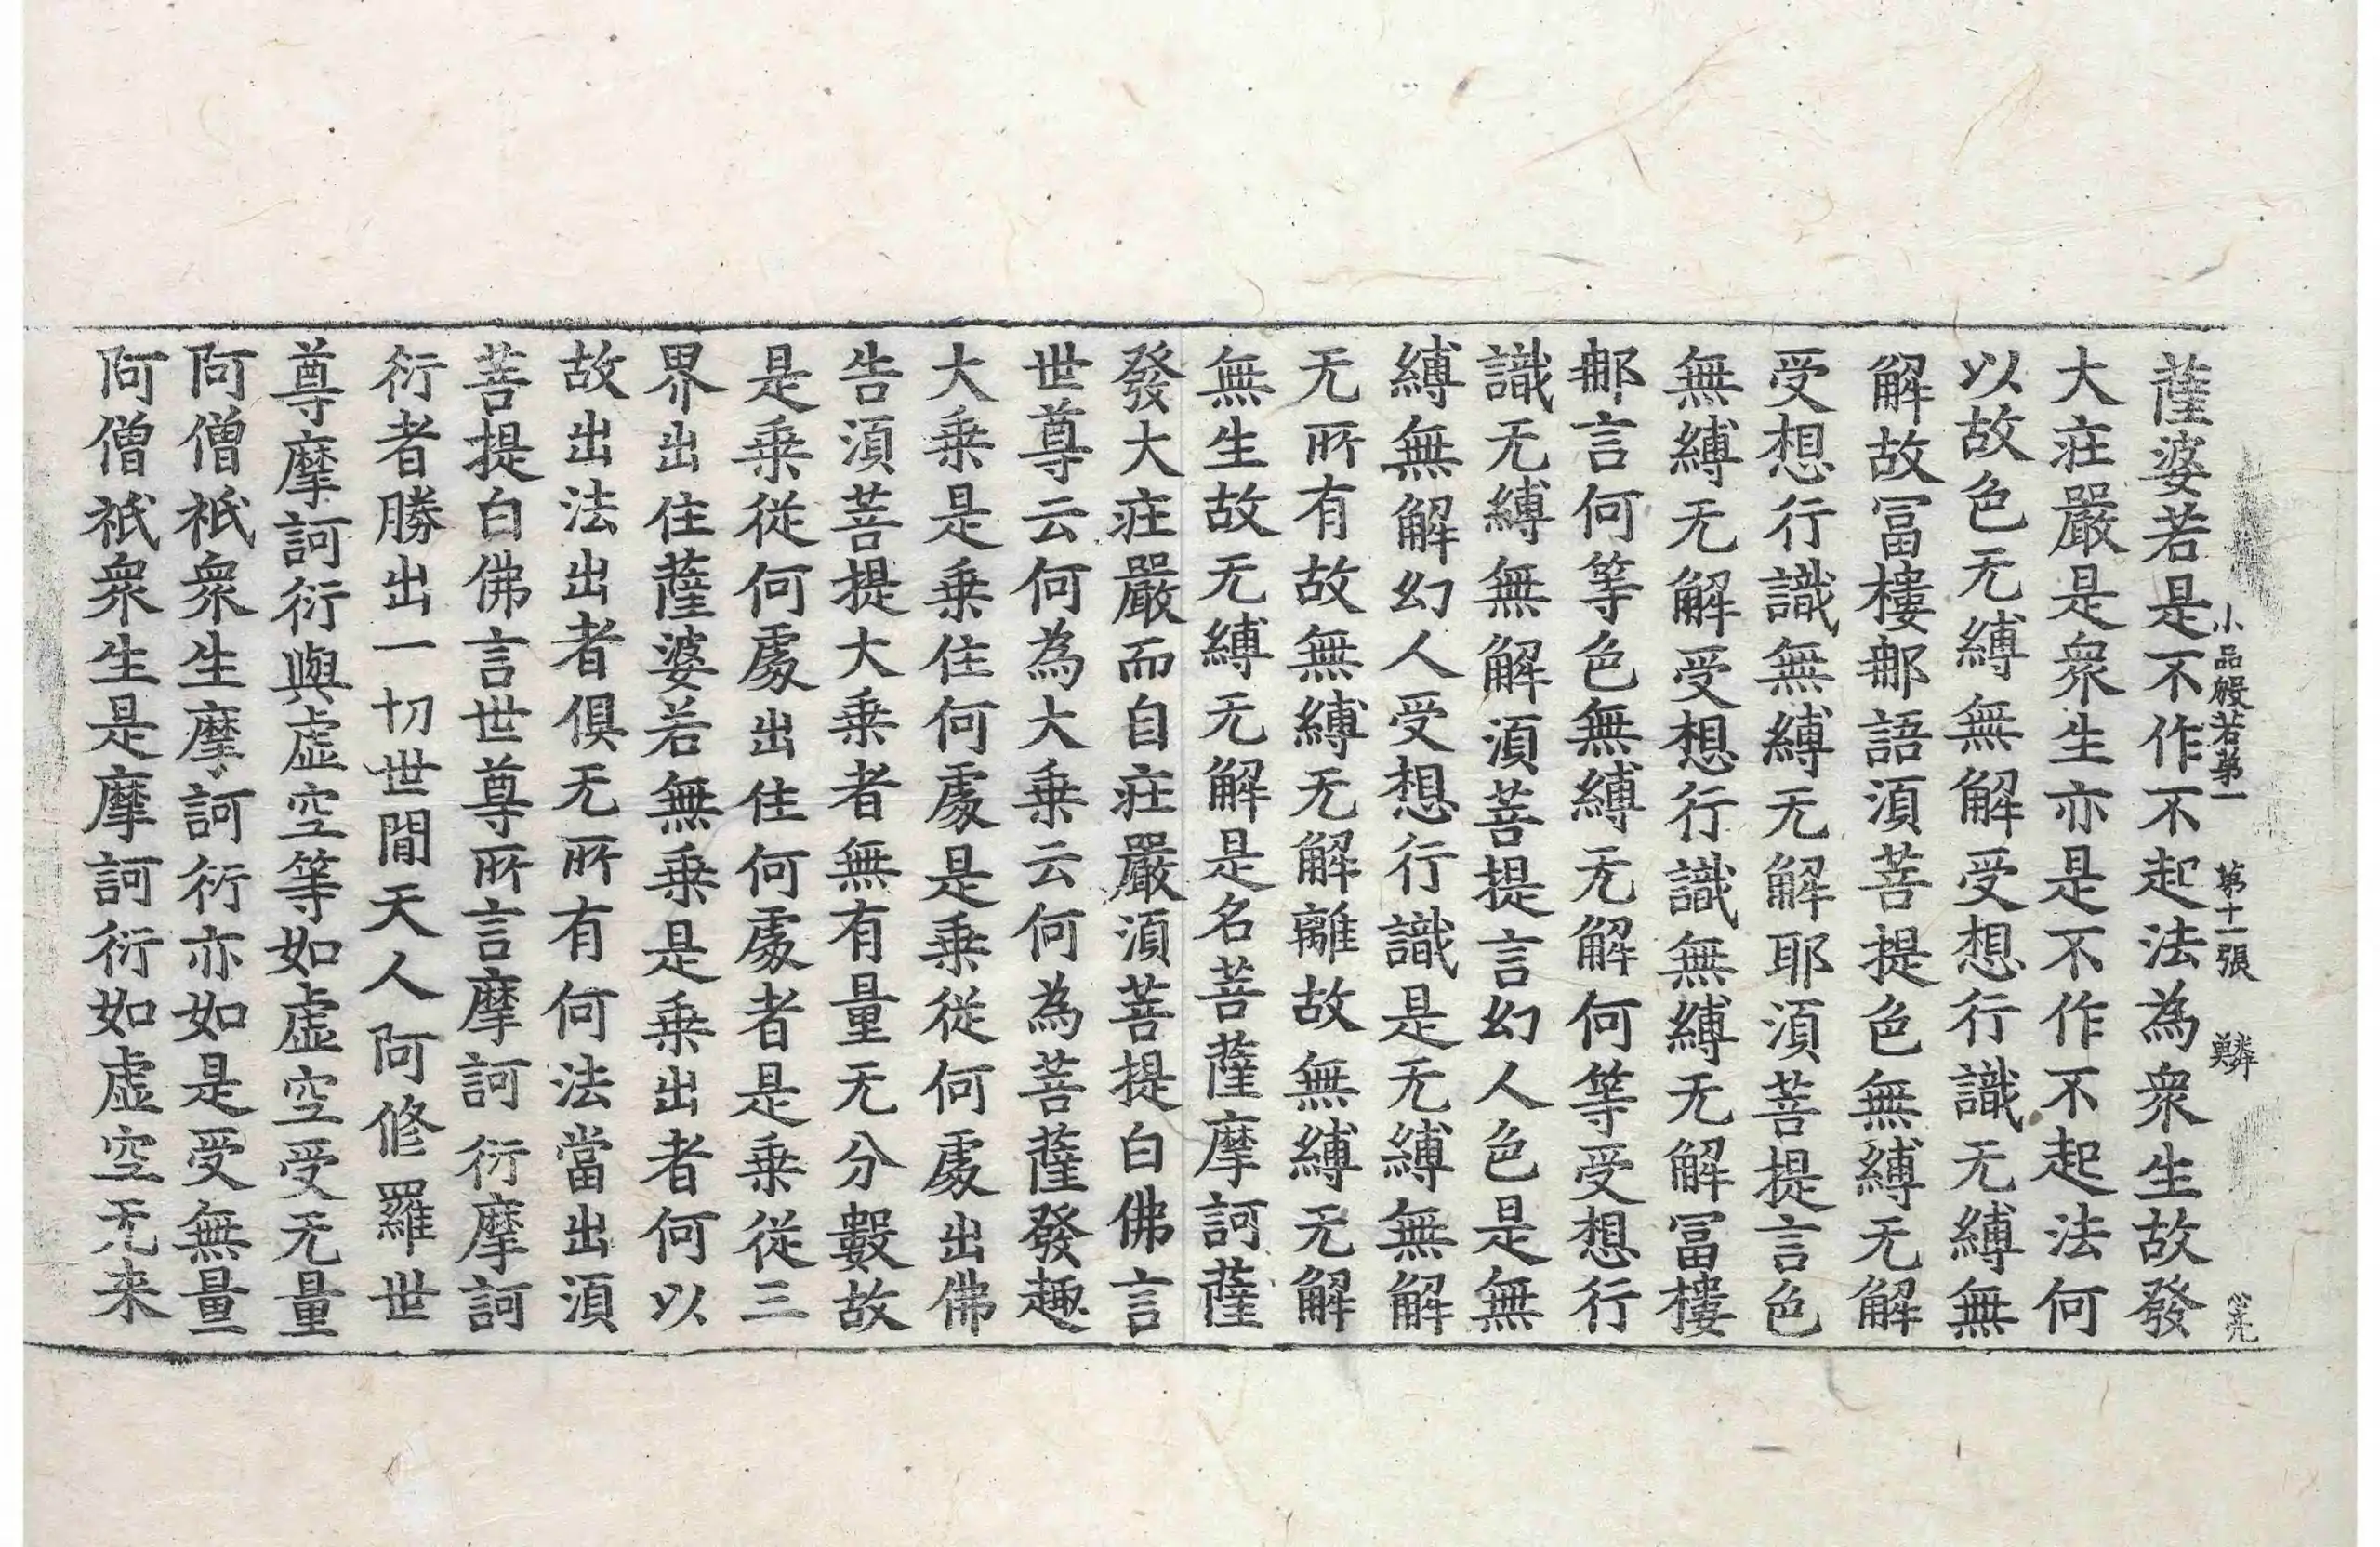 薩婆若是不作不起法為衆生故發
小品般若第一 第十一張 鱗
大莊嚴是衆生亦是不作不起法何
以故色无縛無解受想行識无縛無
解故冨樓郍語湏菩提色無縛无解
受想行識無縛无解耶湏菩提言色
無縛无解受想行識無縛无解冨樓
郍言何等色無縛无解何等受想行
識无縛無解湏菩提言幻人色是無
縛無解幻人受想行識是无縛無解
无所有故無縛无解離故無縛无解
無生故无縛无解是名菩薩摩訶薩
發大莊嚴而自莊嚴湏菩提白佛言
世尊云何為大乗云何為菩薩發趣
大乗是乗住何處是乗從何處出佛
告湏菩提大乗者無有量无分數故
是乗從何處出住何處者是乗從三
界出住薩婆若無乗是乗出者何以
故出法出者俱无所有何法當出湏
菩提白佛言世尊所言摩訶衍摩訶
衍者勝出一切世間天人阿修羅世
尊摩訶衍與虛空等如虛空受无量
阿僧祇衆生摩訶衍亦如是受無量
阿僧祇衆生是摩訶衍如虛空无来